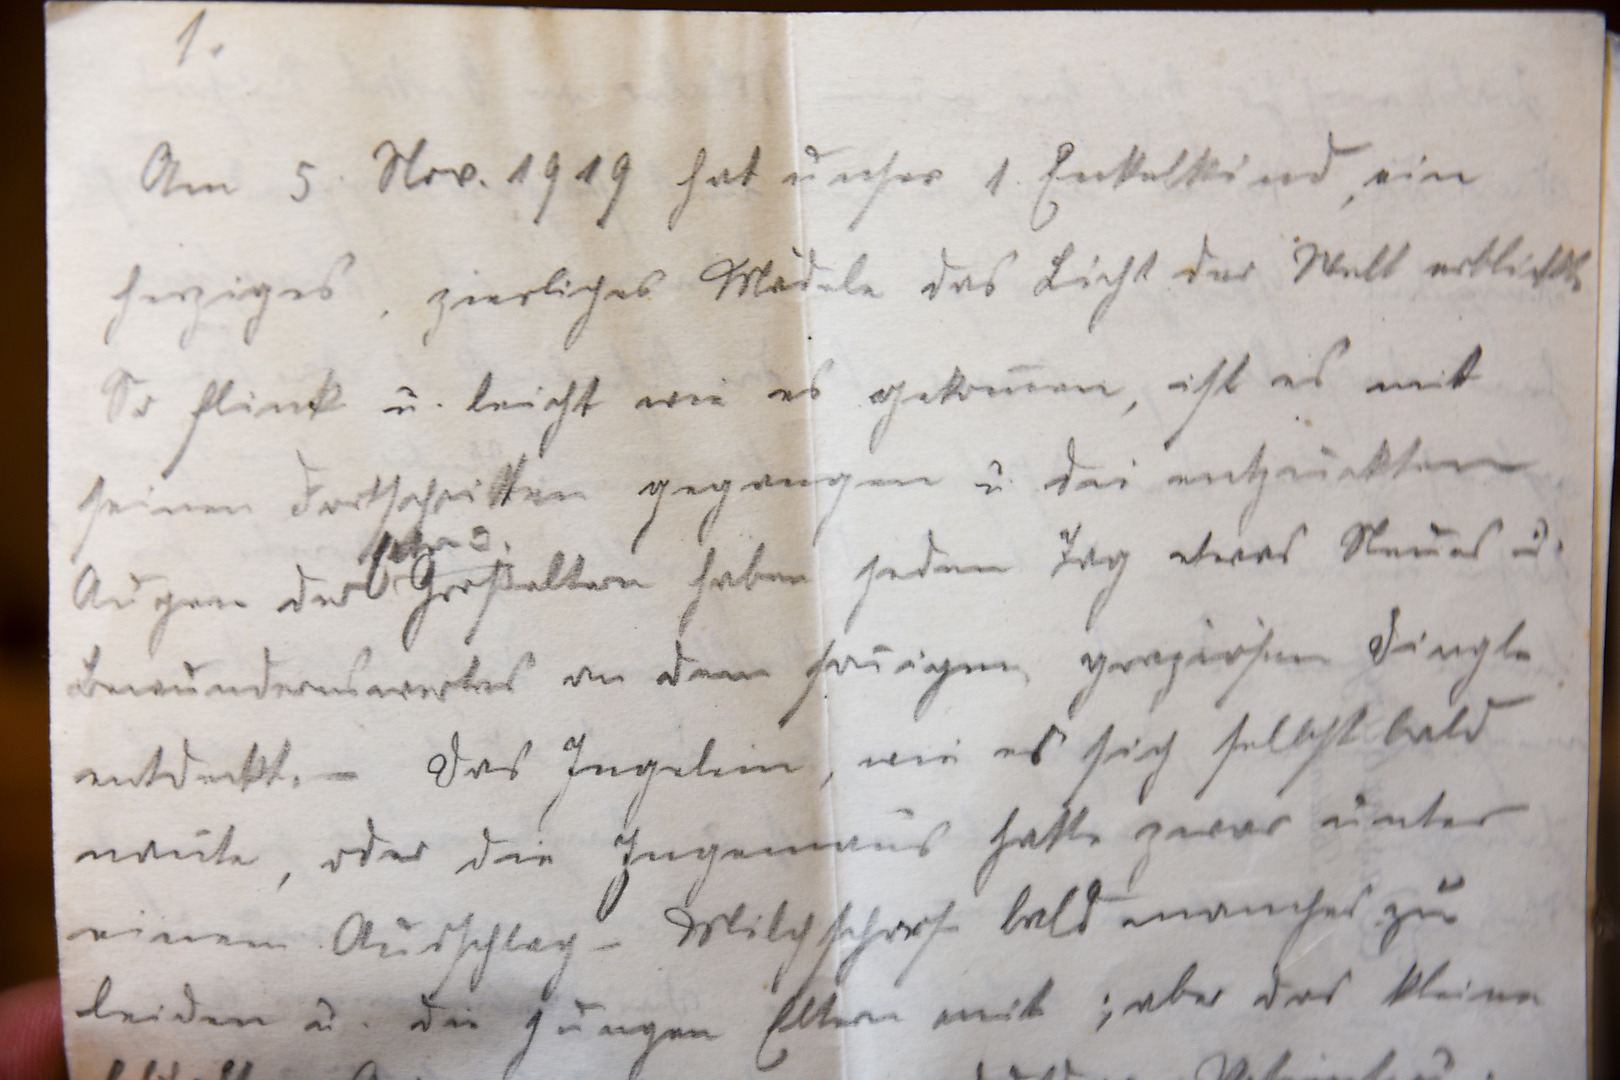 1.
Am 5. Nov. 1919 hat unser 1. Enkelkind, ein
herziges, zierliches Mädele das Licht der Welt erblickt.
So flink u. leicht wie es gekommen, ist es mit
seinen Fortschritten gegangen u. die entzückten
Augen der Großeltern haben jeden Tag etwas Neues u.
Bewundernswertes an dem graziösen Dingle
entdeckt. – Das Ingelein, wie es sich selbst bald
nannte, oder die Ingemaus hatte zwar unter
einem Ausschlag – Milchschorf bald manches zu
leiden u. die jungen Eltern mit; aber das kleine